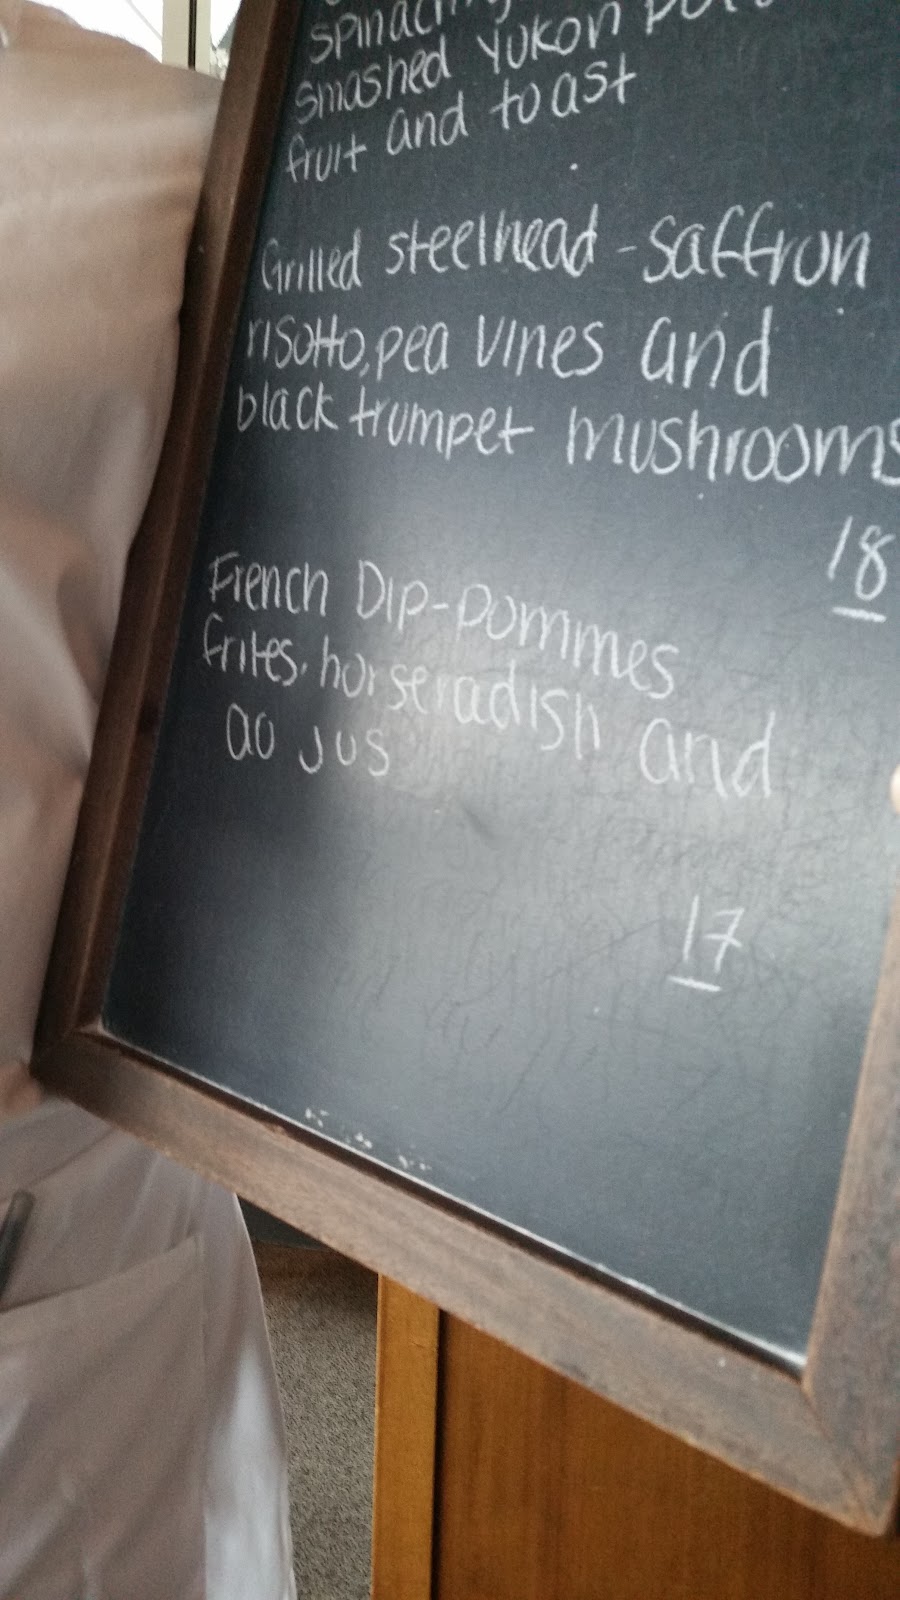 smashed Yukon
fruit and toast
Grilled steelhead - Saffron
risotto, pea vines and
black trumpet mushrooms
18
French Dip - pommes
frites, horseradish and
au jus
17